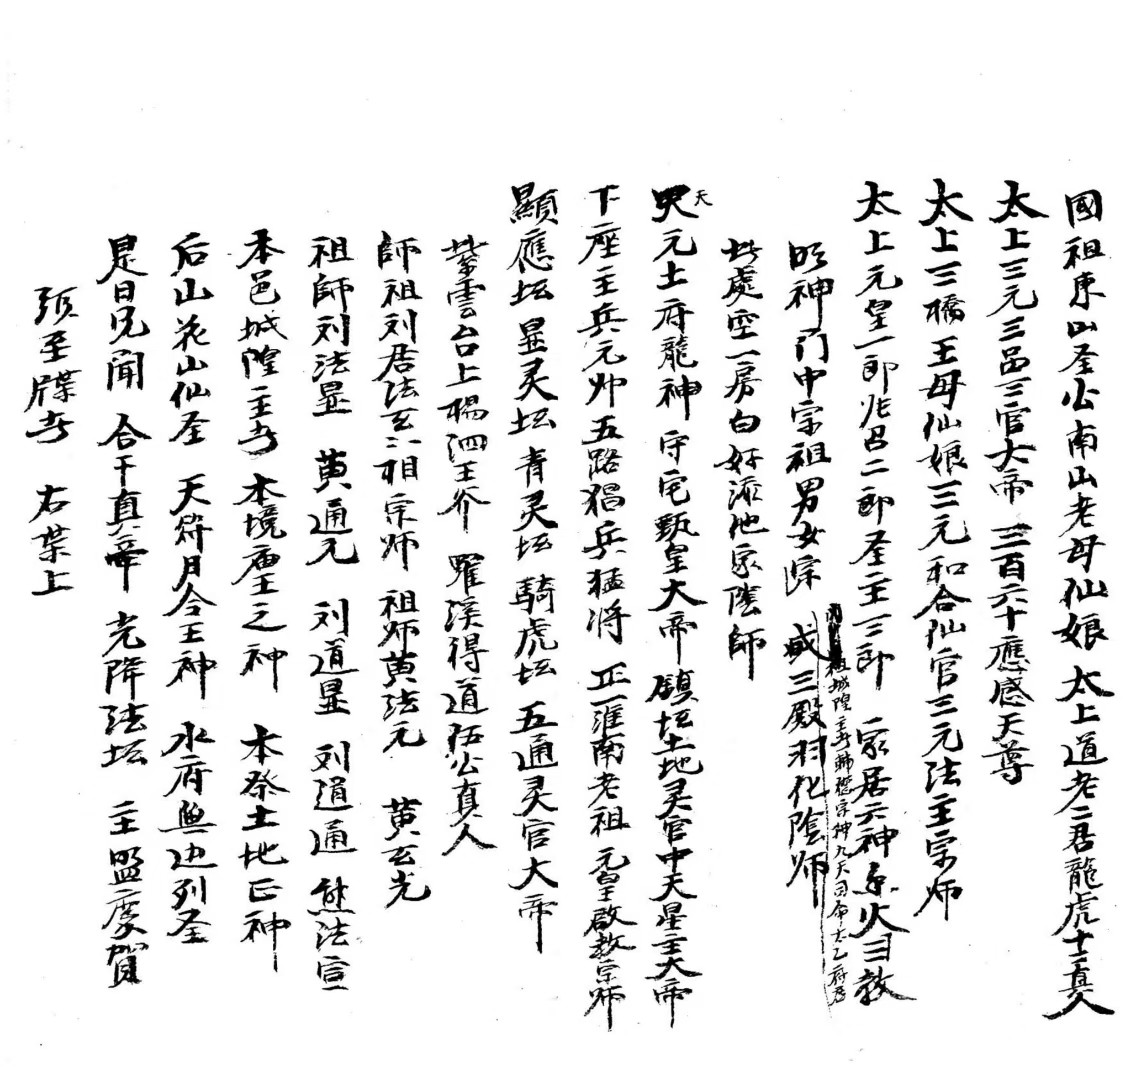 國祖東山圣公南山老母仙娘 太上道老二君龍虎十二真人
太上三元三品三官大帝 三百六十應感天尊
太上三橋王母仙娘三元和合仙官三元法主宗师
太上元皇一郎兆呂二郎圣主三郎 家居六神 火 教
明神门中宗祖男女 三殿羽化陰师
城隍主 宗神九天司命太乙府君
此處空一房白好添他家陰師
天
元土府龍神 守宅甄皇大帝 鎮坛土地灵官中天星主大帝
下座主兵元帅五路猖兵猛将 正一淮南老祖 元皇啟教宗师
顯應坛 显灵坛 青灵坛 騎虎坛 五通灵官大帝
紫雲台上楊泗王爷 羅溪得道伍公真人
師祖刘居法玄 祖宗师 祖师黄法元 黄玄光
祖師刘法显 黄通元 刘道显 刘道通 熊法宣
本邑城隍主 本境庙王之神 本祭土地正神
后山花山仙圣 天符月令王神 水府無边列圣
是日見聞 合干真宰 光降法坛 主盟度賀
须至牒 右葉上